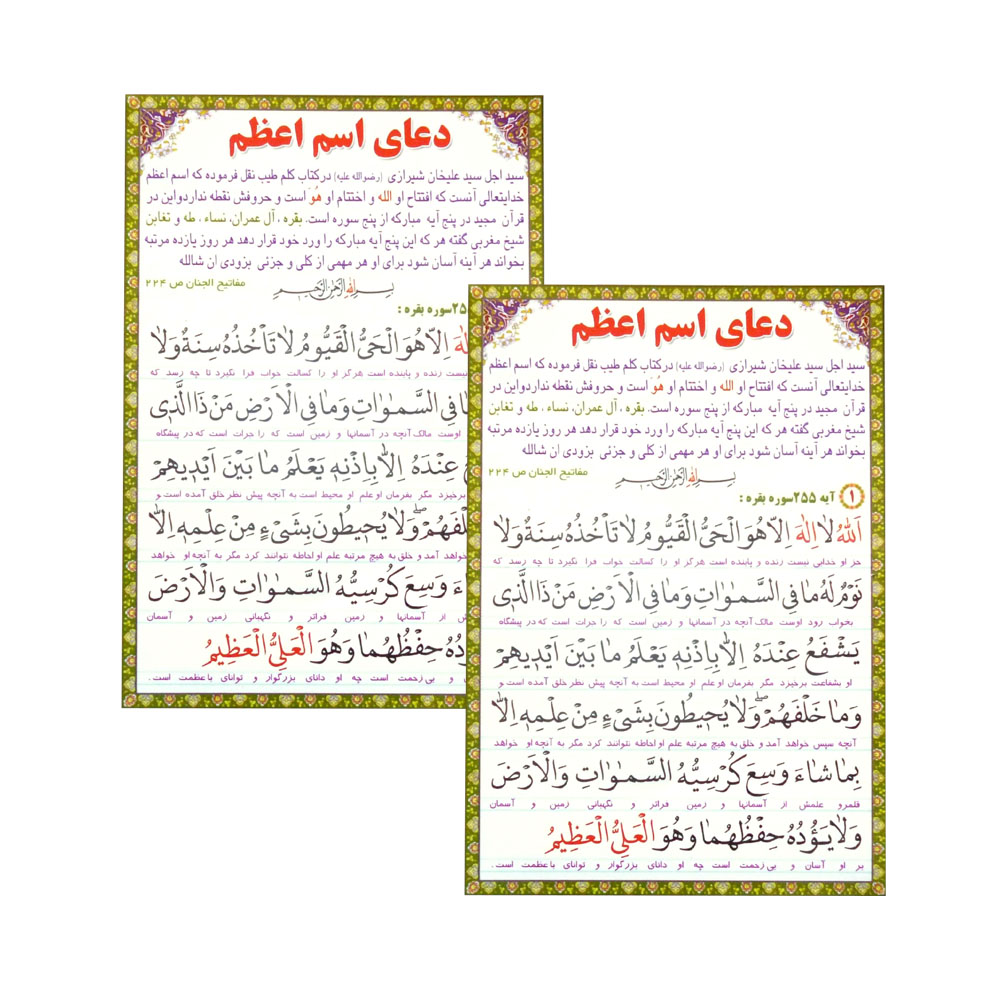 دعای اسم اعظم
سید اجل سید علیخان شیرازی (رضوالله علیه) در کتاب کلم طیب نقل فرموده که اسم اعظم
خدایتعالی آنست که افتتاح او الله و اختتام او هُوَ است و حروفش نقطه نداردواین در
قرآن مجید در پنج آیه مبارکه از پنج سوره است. بقره ، آل عمران، نساء ، طه و تغابن
شیخ مغربی گفته هر که این پنج آیه مبارکه را ورد خود قرار دهد هر روز یازده مرتبه
بخواند هر آینه آسان شود برای او هر مهمی از کلی و جزئی بزودی ان شالله
بسم الله الرحمن الرحیم مفاتیح الجنان ص ۲۲۴
۲۵۵ سوره بقره :
لٰهَ اِلاّ هُوَ الْحَیُّ الْقَیُّومُ لاٰ تَأْخُذُهُ سِنَةٌ وَلاٰ
نیست زنده و پاینده است هرگز او را کسالت خواب فرا نگیرد تا چه رسد که
مٰا فِی السَّمٰوٰاتِ وَ مٰا فِی الْاَرْضِ مَنْ ذَا الَّذٖی
اوست مالک آنچه در آسمانها و زمین است که را جرات است که در پیشگاه
عِنْدَهُ اِلاّٰ بِاِذْنِهٖ یَعْلَمُ مٰا بَیْنَ اَیْدٖیهِمْ
برخیزد مگر بفرمان او علم او محیط است به آنچه پیش نظر خلق آمده است و
لْفَهُمْ وَلاٰ یُحٖیطُونَ بِشَیْءٍ مِنْ عِلْمِهٖ اِلاّٰ
خواهد آمد و خلق به هیچ مرتبه علم او احاطه نتوانند کرد مگر به آنچه او خواهد
اءَ وَسِعَ کُرْسِیُّهُ السَّمٰوٰاتِ وَالْاَرْضَ
ش از آسمانها و زمین فراتر و نگهبانی زمین و آسمان
ودُهُ حِفْظُهُمٰا وَهُوَ الْعَلِیُّ الْعَظٖیمُ
و بی زحمت است چه او دانای بزرگوار و توانای باعظمت است .
دعای اسم اعظم
سید اجل سید علیخان شیرازی (رضوالله علیه) در کتاب کلم طیب نقل فرموده که اسم اعظم
خدایتعالی آنست که افتتاح او الله و اختتام او هُوَ است و حروفش نقطه نداردواین در
قرآن مجید در پنج آیه مبارکه از پنج سوره است. بقره ، آل عمران، نساء ، طه و تغابن
شیخ مغربی گفته هر که این پنج آیه مبارکه را ورد خود قرار دهد هر روز یازده مرتبه
بخواند هر آینه آسان شود برای او هر مهمی از کلی و جزئی بزودی ان شالله
بسم الله الرحمن الرحیم مفاتیح الجنان ص ۲۲۴
۱ آیه ۲۵۵ سوره بقره :
اَللّٰهُ لاٰ اِلٰهَ اِلاّ هُوَ الْحَیُّ الْقَیُّومُ لاٰ تَأْخُذُهُ سِنَةٌ وَلاٰ
جز او خدایی نیست زنده و پاینده است هرگز او را کسالت خواب فرا نگیرد تا چه رسد که
نَوْمٌ لَهُ مٰا فِی السَّمٰوٰاتِ وَ مٰا فِی الْاَرْضِ مَنْ ذَا الَّذٖی
بخواب رود اوست مالک آنچه در آسمانها و زمین است که را جرات است که در پیشگاه
یَشْفَعُ عِنْدَهُ اِلاّٰ بِاِذْنِهٖ یَعْلَمُ مٰا بَیْنَ اَیْدٖیهِمْ
او بشفاعت برخیزد مگر بفرمان او علم او محیط است به آنچه پیش نظر خلق آمده است و
وَمٰا خَلْفَهُمْ وَلاٰ یُحٖیطُونَ بِشَیْءٍ مِنْ عِلْمِهٖ اِلاّٰ
آنچه سپس خواهد آمد و خلق به هیچ مرتبه علم او احاطه نتوانند کرد مگر به آنچه او خواهد
بِمٰا شٰاءَ وَسِعَ کُرْسِیُّهُ السَّمٰوٰاتِ وَالْاَرْضَ
قلمرو علمش از آسمانها و زمین فراتر و نگهبانی زمین و آسمان
وَلاٰ یَؤُدُهُ حِفْظُهُمٰا وَهُوَ الْعَلِیُّ الْعَظٖیمُ
بر او آسان و بی زحمت است چه او دانای بزرگوار و توانای باعظمت است .